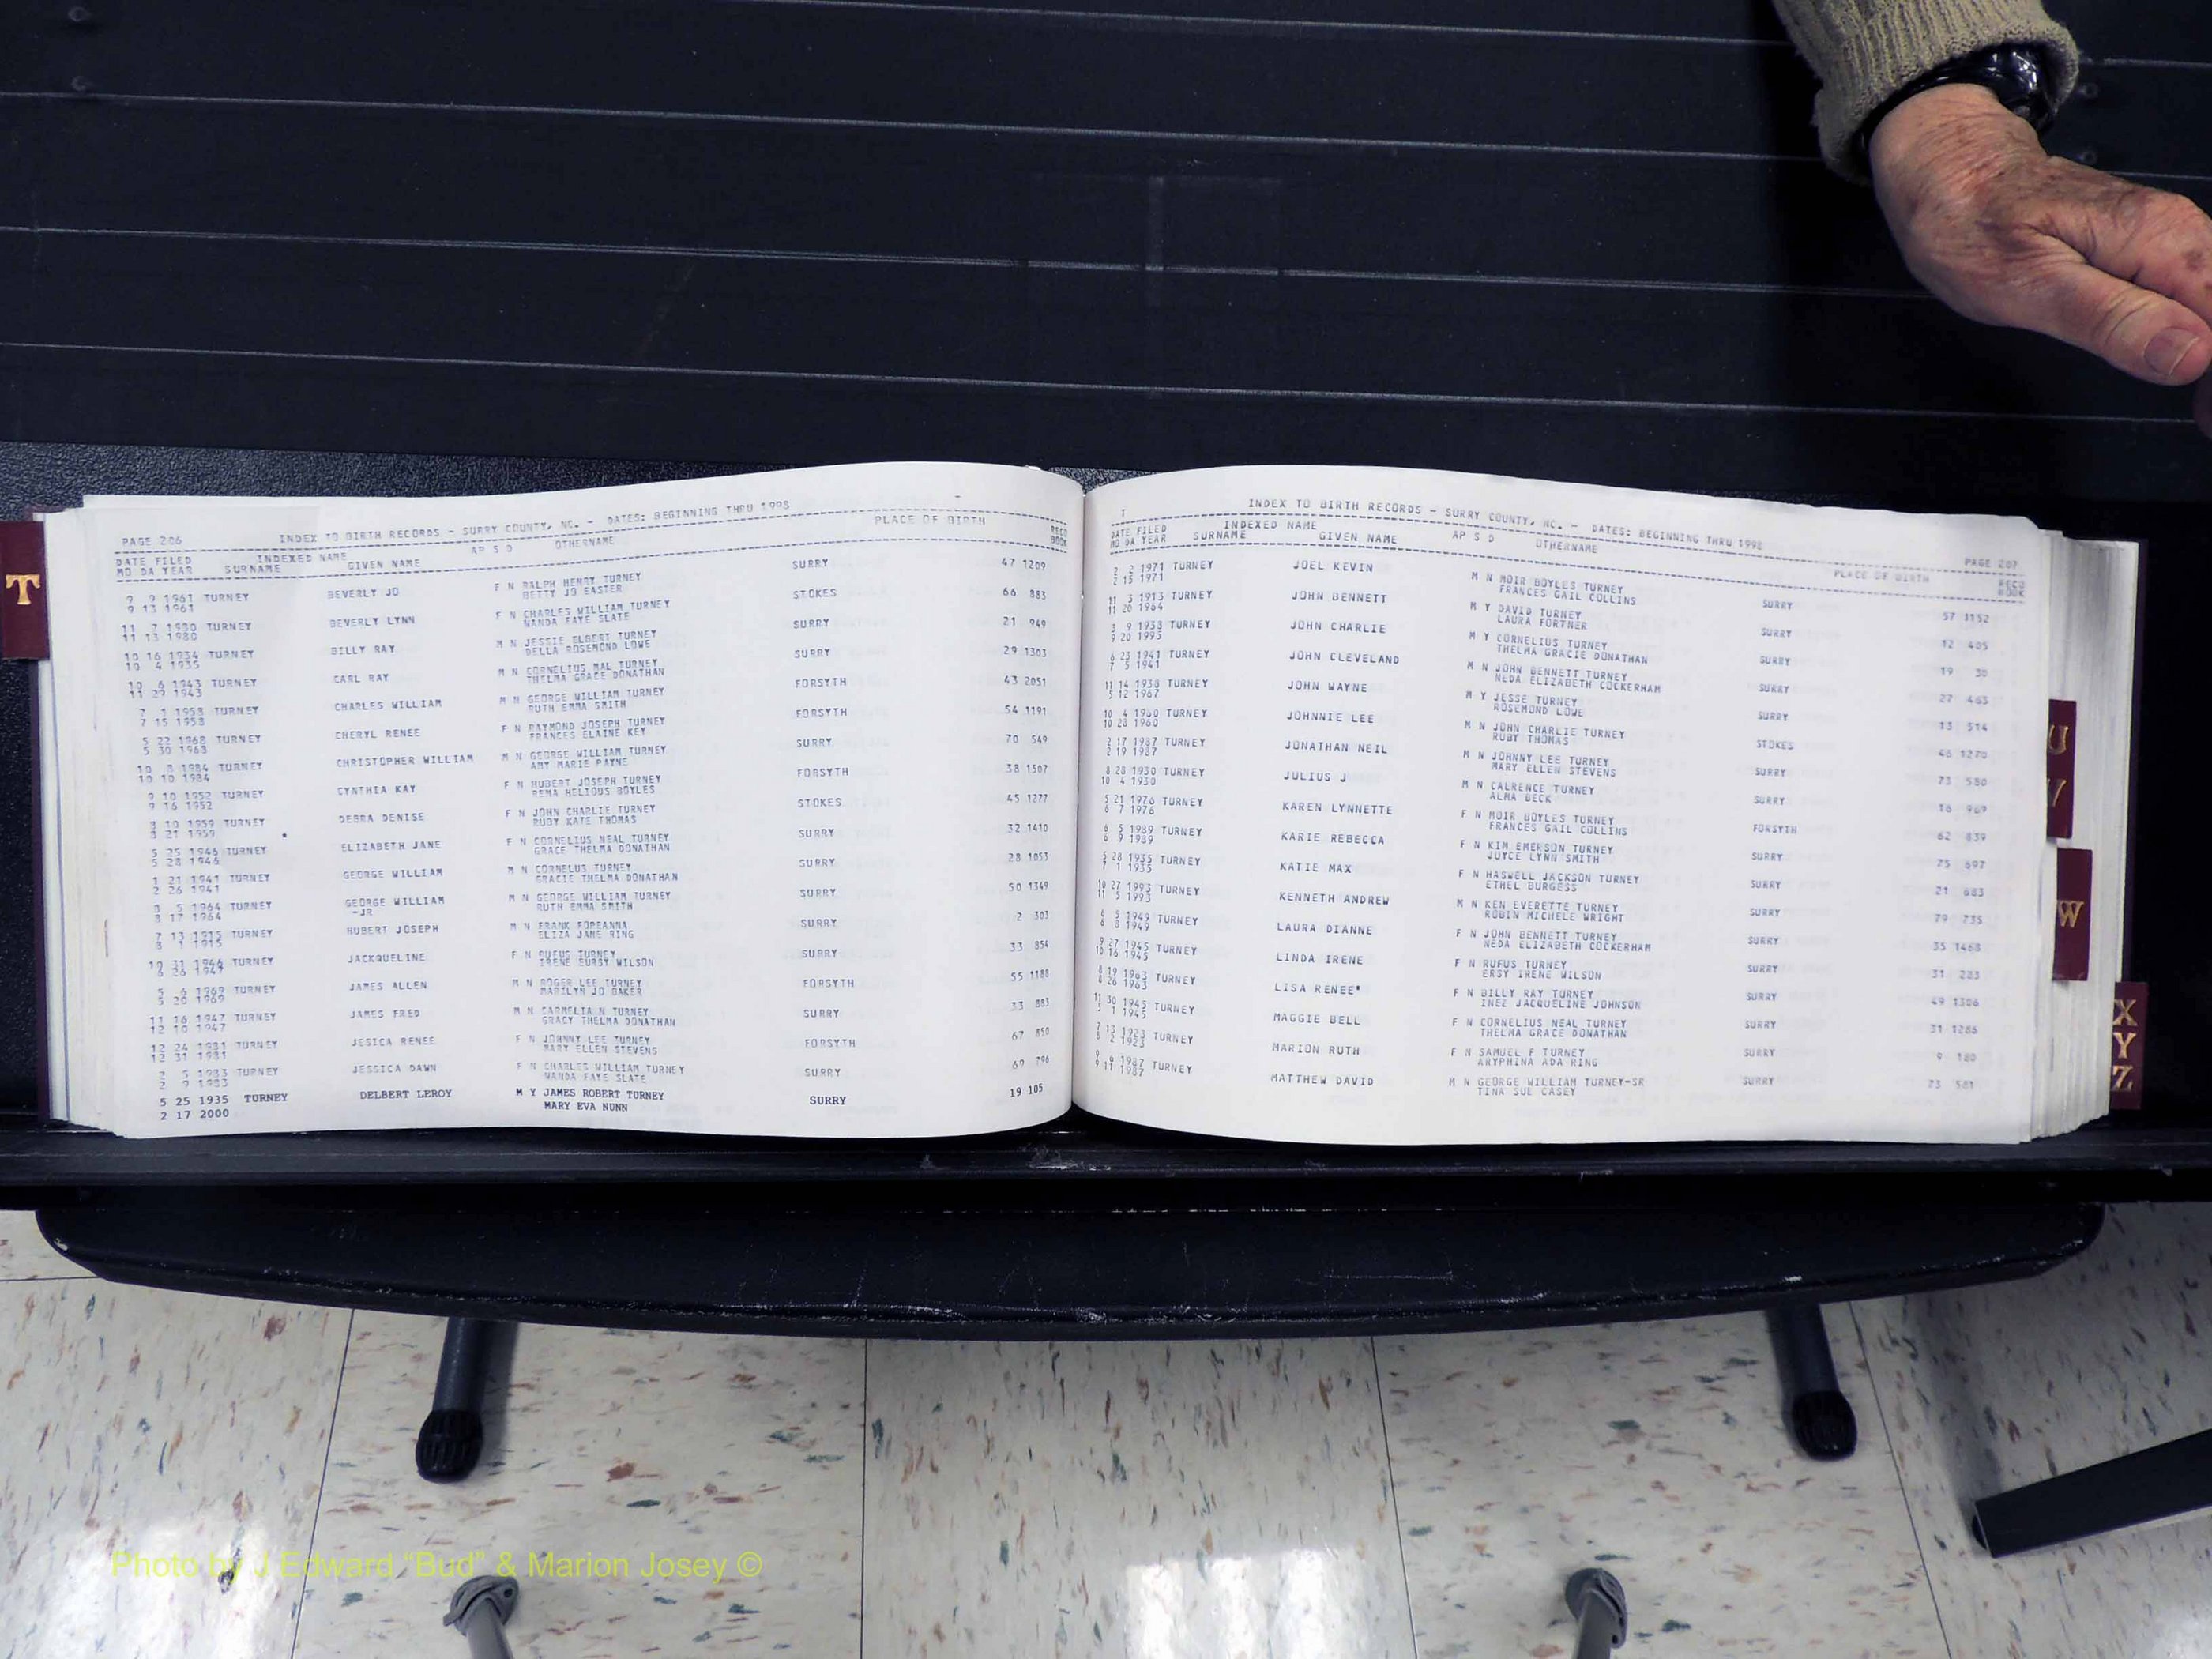 T
PAGE 206 INDEX TO BIRTH RECORDS - SURRY COUNTY, NC. - DATES: BEGINNING THRU 1998
DATE FILED INDEXED NAME AP S D OTHERNAME PLACE OF BIRTH RECD
MO DA YEAR SURNAME GIVEN NAME BOOK
9 9 1961 TURNEY BEVERLY JO F N RALPH HENRY TURNEY SURRY 47 1209
9 13 1961 BETTY JO EASTER
11 7 1980 TURNEY BEVERLY LYNN F N CHARLES WILLIAM TURNEY STOKES 66 883
11 13 1980 WANDA FAYE SLATE
10 16 1934 TURNEY BILLY RAY M N JESSIE ELBERT TURNEY SURRY 21 949
10 4 1935 DELLA ROSEMOND LOWE
10 6 1943 TURNEY CARL RAY M N CORNELIUS NAL TURNEY SURRY 29 1303
11 29 1943 THELMA GRACE DONATHAN
7 1 1958 TURNEY CHARLES WILLIAM M N GEORGE WILLIAM TURNEY FORSYTH 43 2051
7 15 1958 RUTH EMMA SMITH
5 22 1968 TURNEY CHERYL RENEE F N RAYMOND JOSEPH TURNEY FORSYTH 54 1191
5 30 1968 FRANCES ELAINE KEY
10 8 1984 TURNEY CHRISTOPHER WILLIAM M N GEORGE WILLIAM TURNEY SURRY 70 549
10 10 1984 AMY MARIE PAYNE
9 10 1952 TURNEY CYNTHIA KAY F N HUBERT JOSEPH TURNEY FORSYTH 38 1507
9 16 1952 REMA HELIOUS BOYLES
8 10 1959 TURNEY DEBRA DENISE F N JOHN CHARLIE TURNEY STOKES 45 1277
8 21 1959 RUBY KATE THOMAS
5 25 1946 TURNEY ELIZABETH JANE F N CORNELIUS NEAL TURNEY SURRY 32 1410
5 28 1946 GRACE THELMA DONATHAN
1 21 1941 TURNEY GEORGE WILLIAM M N CORNELUS TURNEY SURRY 28 1053
2 26 1941 GRACIE THELMA DONATHAN
8 5 1964 TURNEY GEORGE WILLIAM M N GEORGE WILLIAM TURNEY SURRY 50 1349
8 17 1964 -JR RUTH EMMA SMITH
7 13 1915 TURNEY HUBERT JOSEPH M N FRANK FOREANNA SURRY 2 303
8 1 1915 ELIZA JANE RING
10 31 1946 TURNEY JACKQUELINE F N RUFUS TURNEY SURRY 33 854
1947 IRENE EURSY WILSON
5 6 1969 TURNEY JAMES ALLEN M N ROGER LEE TURNEY FORSYTH 55 1188
5 20 1969 MARILYN JO BAKER
11 16 1947 TURNEY JAMES FRED M N CARMELIA N TURNEY SURRY 33 883
12 10 1947 GRACY THELMA DONATHAN
12 24 1981 TURNEY JESICA RENEE F N JOHNNY LEE TURNEY FORSYTH 67 850
12 31 1981 MARY ELLEN STEVENS
2 5 1983 TURNEY JESSICA DAWN F N CHARLES WILLIAM TURNEY SURRY 69 796
2 9 1983 WANDA FAYE SLATE
5 25 1935 TURNEY DELBERT LEROY M Y JAMES ROBERT TURNEY SURRY 19 105
2 17 2000 MARY EVA NUNN
T INDEX TO BIRTH RECORDS - SURRY COUNTY, NC. - DATES: BEGINNING THRU 1998 PAGE 207
DATE FILED INDEXED NAME AP S D OTHERNAME PLACE OF BIRTH RECD
MO DA YEAR SURNAME GIVEN NAME BOOK
2 2 1971 TURNEY JOEL KEVIN M N MOIR BOYLES TURNEY SURRY 57 1152
2 15 1971 FRANCES GAIL COLLINS
11 3 1913 TURNEY JOHN BENNETT M Y DAVID TURNEY SURRY 12 405
11 20 1964 LAURA FORTNER
3 9 1938 TURNEY JOHN CHARLIE M Y CORNELIUS TURNEY SURRY 19
9 20 1995 THELMA GRACIE DONATHAN
6 23 1941 TURNEY JOHN CLEVELAND M N JOHN BENNETT TURNEY SURRY 27 463
7 5 1941 NEDA ELIZABETH COCKERHAM
11 14 1938 TURNEY JOHN WAYNE M Y JESSE TURNEY SURRY 13 514
5 12 1967 ROSEMOND LOWE
10 4 1960 TURNEY JOHNNIE LEE M N JOHN CHARLIE TURNEY STOKES 46 1270
10 28 1960 RUBY THOMAS
2 17 1987 TURNEY JONATHAN NEIL M N JOHNNY LEE TURNEY SURRY 73 580
2 19 1987 MARY ELLEN STEVENS
8 28 1930 TURNEY JULIUS J M N CALRENCE TURNEY SURRY 16 969
10 4 1930 ALMA BECK
5 21 1976 TURNEY KAREN LYNNETTE F N MOIR BOYLES TURNEY FORSYTH 62 839
6 7 1976 FRANCES GAIL COLLINS
6 5 1989 TURNEY KARIE REBECCA F N KIM EMERSON TURNEY SURRY 75 697
6 9 1989 JOYCE LYNN SMITH
5 28 1935 TURNEY KATIE MAX F N HASWELL JACKSON TURNEY SURRY 21 683
7 1 1935 ETHEL BURGESS
10 27 1993 TURNEY KENNETH ANDREW M N KEN EVERETTE TURNEY SURRY 79 735
11 5 1993 ROBIN MICHELE WRIGHT
6 5 1949 TURNEY LAURA DIANNE F N JOHN BENNETT TURNEY SURRY 35 1468
6 8 1949 NEDA ELIZABETH COCKERHAM
9 27 1945 TURNEY LINDA IRENE F N RUFUS TURNEY SURRY 31 283
10 16 1945 ERSY IRENE WILSON
8 19 1963 TURNEY LISA RENEE F N BILLY RAY TURNEY SURRY 49 1306
8 26 1963 INEZ JACQUELINE JOHNSON
11 30 1945 TURNEY MAGGIE BELL F N CORNELIUS NEAL TURNEY SURRY 31 1286
5 1 1945 THELMA GRACE DONATHAN
7 13 1923 TURNEY MARION RUTH F N SAMUEL F TURNEY SURRY 9 180
8 2 1923 ARYPHINA ADA RING
9 6 1987 TURNEY MATTHEW DAVID M N GEORGE WILLIAM TURNEY-SR SURRY 73 581
9 11 1987 TINA SUE CASEY
U
V
W
X
Y
Z
Photo by J Edward “Bud” & Marion Josey ©